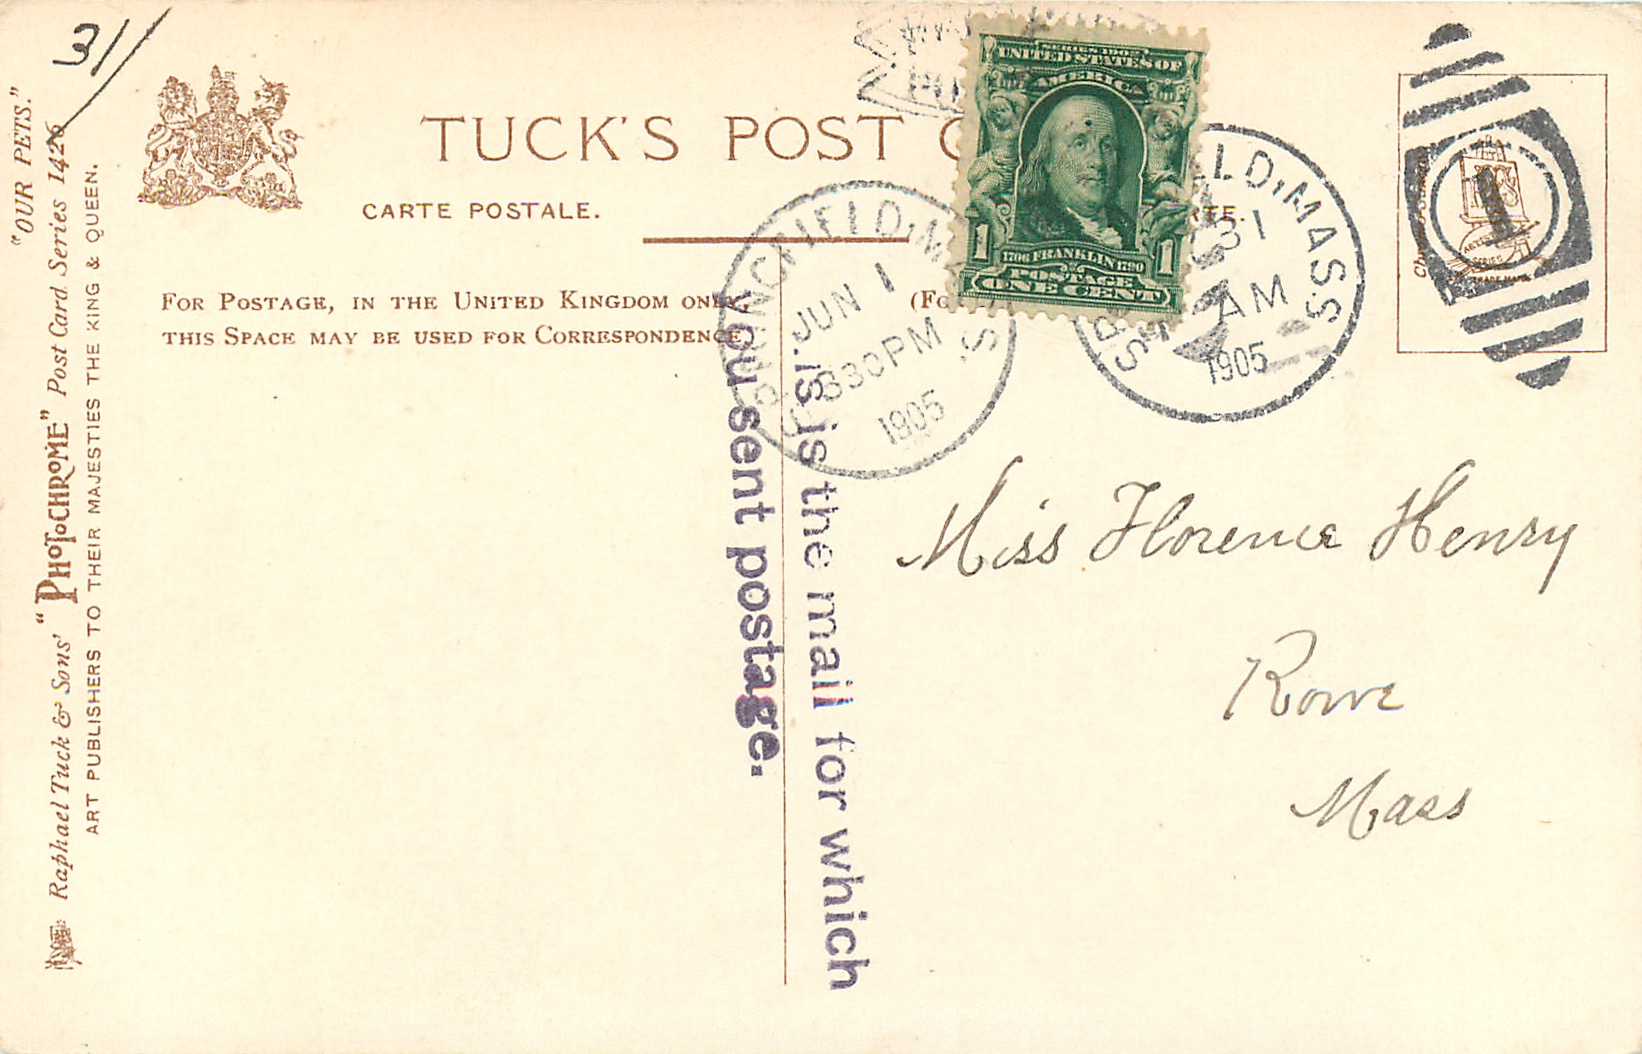 311
"OUR PETS."
Raphael Tuck & Sons' "PHOTOCHROME" Post Card Series 1426
ART PUBLISHERS TO THEIR MAJESTIES THE KING & QUEEN.
TUCK'S POST C
CARTE POSTALE.
FOR POSTAGE, IN THE UNITED KINGDOM ONLY,
THIS SPACE MAY BE USED FOR CORRESPONDENCE
(FO
SERIES 1902
UNITED STATES OF
AMERICA
1706 FRANKLIN 1790
POSTAGE
1 1
ONE CENT
SPRINGFIELD, MASS.
JUN 1
330PM
1905
LD, MASS
31
AM
1905
RTE.
1
is is the mail for which
you sent postage.
Miss Florence Henry
Rowe
Mass